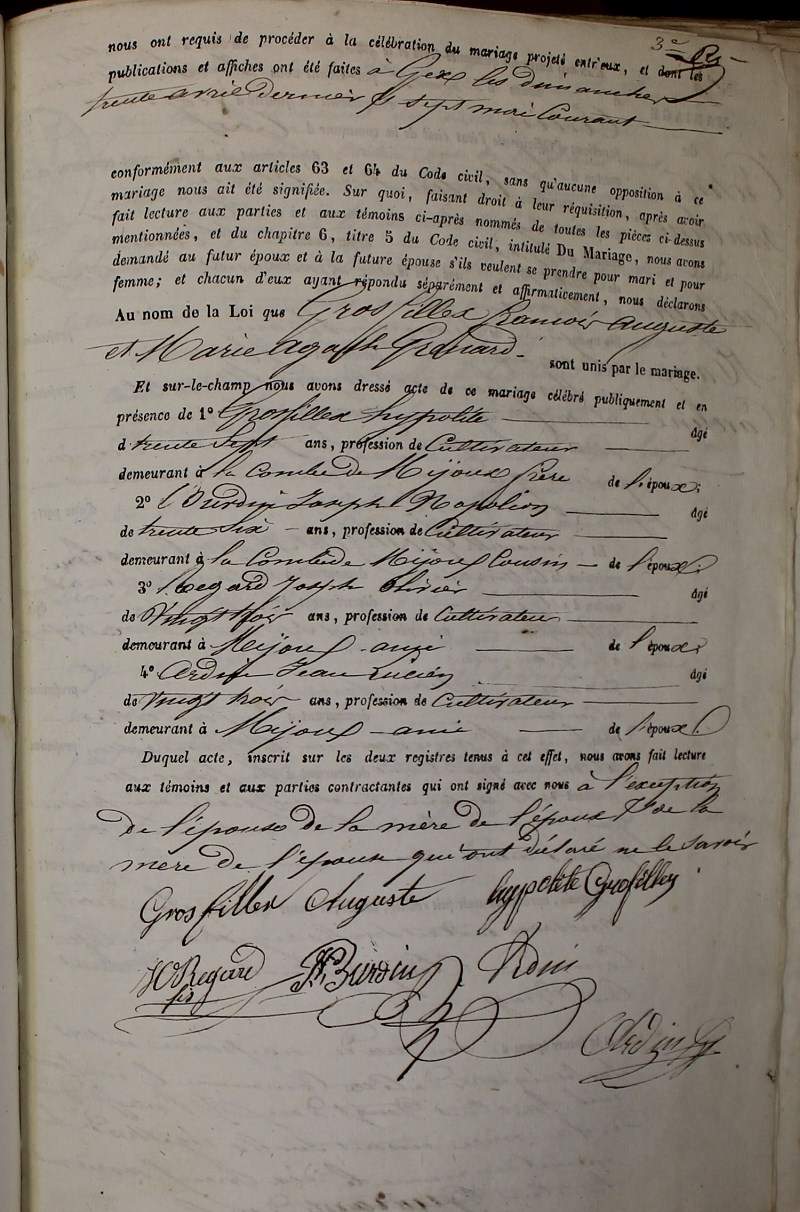 3e
nous ont requis de procéder à la célébration du mariage projeté entr'eux, et dont les
publications et affiches ont été faites à Gex les dimanches
trente avril dernier & sept mai Courant
conformément aux articles 63 et 64 du Code civil, sans qu'aucune opposition à ce
mariage nous ait été signifiée. Sur quoi, faisant droit à leur réquisition, après avoir
fait lecture aux parties et aux témoins ci-après nommés de toutes les pièces ci-dessus
mentionnées, et du chapitre 6, titre 5 du Code civil, intitulé Du Mariage, nous avons
demandé au futur époux et à la future épouse s'ils veulent se prendre pour mari et pour
femme; et chacun d'eux ayant répondu séparément et affirmativement, nous déclarons
Au nom de la Loi que Grosfillex francois auguste
et Marie agathe Grenard
sont unis par le mariage.
Et sur-le-champ nous avons dressé acte de ce mariage célébré publiquement et en
présence de 1° Grosfillex hypolite âgé
d trente sept ans, profession de Cultivateur
demeurant à la Combe de Mijoux frère de l'époux;
2° Burdin Joseph Napoléon âgé
de trente six ans, profession de Cultivateur
demeurant à la Combe de Mijoux Cousin de l'époux;
3° Regard Joseph Olivier âgé
de Vingt trois ans, profession de Cultivateur
demeurant à Mijoux ami de l'époux
4° Jean Lucien âgé
de Vingt trois ans, profession de Cultivateur
demeurant à Mijoux ami de l'époux.
Duquel acte, inscrit sur les deux registres tenus à cet effet, nous avons fait lecture
aux témoins et aux parties contractantes qui ont signé avec nous à l'exception
De l'épouse de la mère de l'époux & de la
mère de l'épouse qui ont déclaré ne le savoir
Grosfillex Auguste hyppolite Grosfillex
JO Regard Burdin